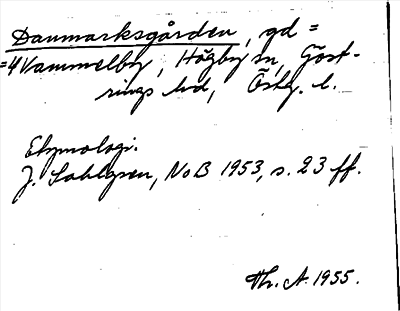 Danmarksgården, gd =
= 4 Vammelby, Högby sn, Göst-
rings hd, Östg. l.
Etymologi.
J. Sahlgren, NoB 1953, s. 23 ff.
Th. A. 1955.